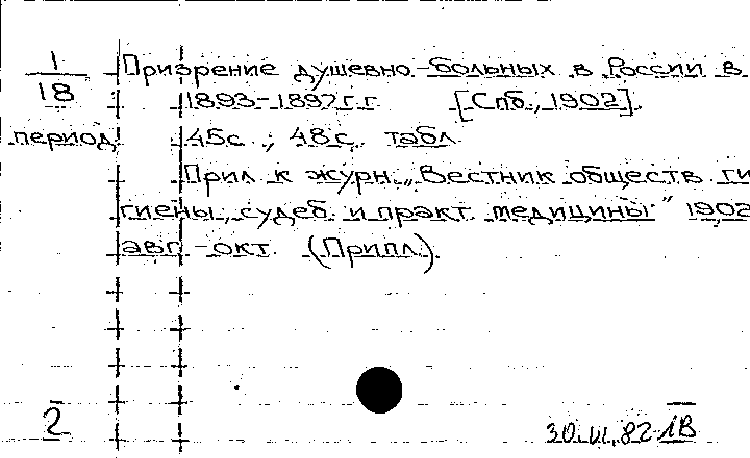 1/18
Призрение душевно-больных в России в
1893-1897г.г. [Спб., 1902].
период 45с.; 48с. табл.
Прил. к журн. „Вестник обществ. ги
гиены, судеб. и практ. медицины" 1902
авг.-окт. (Припл.).
2
30.VI.82 ЛВ